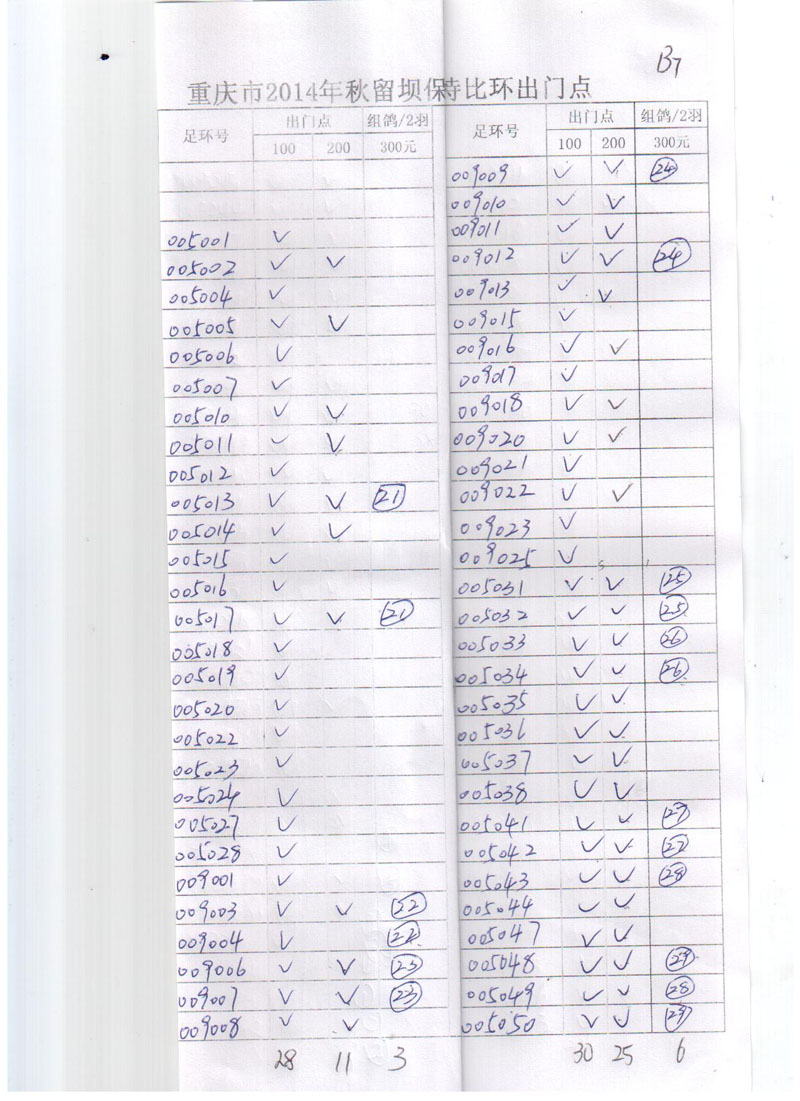 B7
重庆市2014年秋留坝保特比环出门点
足环号 出门点 组鸽/2羽
100 200 300元
005001 ✓
005002 ✓ ✓
005004 ✓
005005 ✓ ✓
005006 ✓
005007 ✓
005010 ✓ ✓
005011 ✓ ✓
005012 ✓
005013 ✓ ✓ 21
005014 ✓ ✓
005015 ✓
005016 ✓
005017 ✓ ✓ 21
005018 ✓
005019 ✓
005020 ✓
005022 ✓
005023 ✓
005024 ✓
005027 ✓
005028 ✓
009001 ✓
009003 ✓ ✓ 22
009004 ✓ 22
009006 ✓ ✓ 23
009007 ✓ ✓ 23
009008 ✓ ✓
28 11 3
足环号 出门点 组鸽/2羽
100 200 300元
009009 ✓ ✓ 24
009010 ✓ ✓
009011 ✓ ✓
009012 ✓ ✓ 24
009013 ✓ ✓
009015 ✓
009016 ✓ ✓
009017 ✓
009018 ✓ ✓
009020 ✓ ✓
009021 ✓
009022 ✓ ✓
009023 ✓
009025 ✓
005031 ✓ ✓ 25
005032 ✓ ✓ 25
005033 ✓ ✓ 26
005034 ✓ ✓ 26
005035 ✓ ✓
005036 ✓ ✓
005037 ✓ ✓
005038 ✓ ✓
005041 ✓ ✓ 27
005042 ✓ ✓ 27
005043 ✓ ✓ 28
005044 ✓ ✓
005047 ✓ ✓
005048 ✓ ✓ 29
005049 ✓ ✓ 28
005050 ✓ ✓ 29
30 25 6